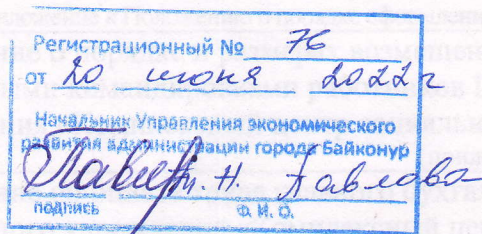 Регистрационный № 76
от 20 июня 2022 г
Начальник Управления экономического
развития администрации города Байконур
Т. Н. Павлова
подпись Ф. И. О.